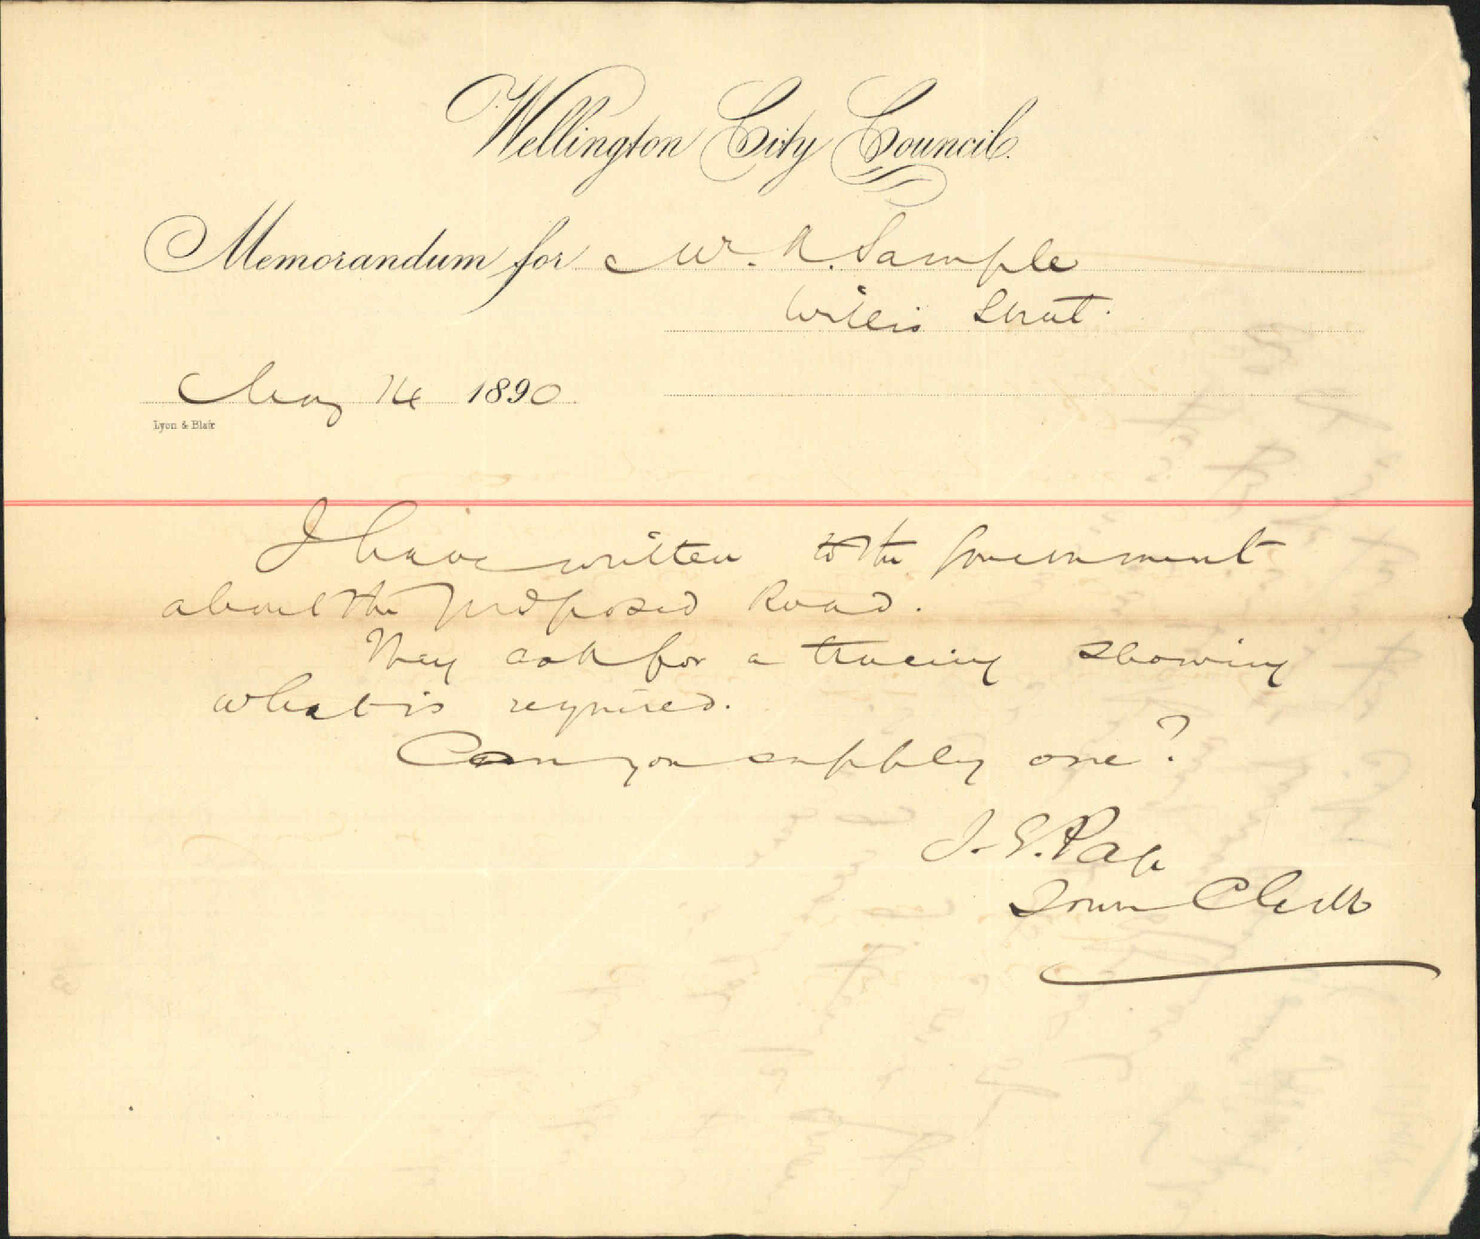 Wellington City Council.
Memorandum for Mr. R. Sample
Willis Street.
May 14 1890
Lyon & Blair
I have written to the Government
about the proposed Road.
They ask for a tracing showing
what is required.
Can you supply one?
J. E. Page
Town Clerk